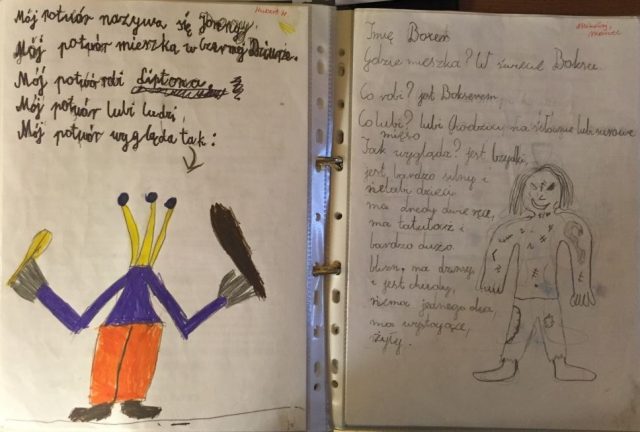 Hubert W.
Mój potwór nazywa się
Mój potwór mieszka w Czarnej Dziurze.
Mój potwór robi
Mój potwór lubi ludzi,
Mój potwór wygląda tak:
Imię Boreń
Gdzie mieszka? W świecie Boksu.
Co robi? jest Bokserem
Co lubi? lubi chodzić na siłownie lubi surowe
mięso
Jak wygląda? jest brzydki,
jest bardzo silny i
nielubi dzieci
ma dredy dwie ręce,
ma tatuarz i
bardzo dużo
blizn, ma dziury,
i jest chudy,
niema jednego oka,
ma wystające,
żyły.